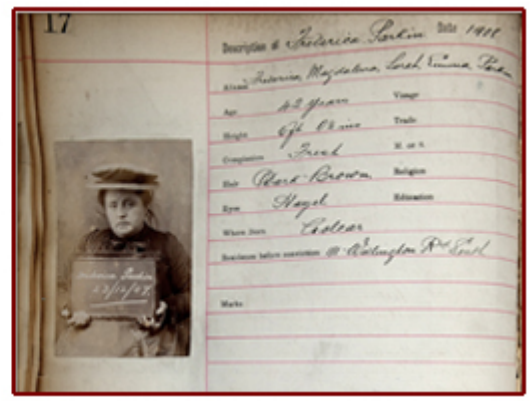 17
Description of Frederica Parkin Date 1908
Alias Frederica, Magdalena, Sarah, Emma, Parkin
Age 42 years Visage
Height Trade
Complexion Fresh M. or S.
Hair Dark-Brown Religion
Eyes Hazel Education
Where born
Residence before conviction Wellington Rd
Marks
Frederica Parkin